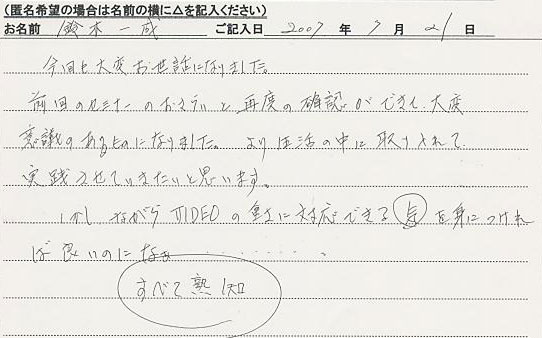 (匿名希望の場合は名前の横に△を記入ください)
お名前 鈴木一成 ご記入日 2007 年 7 月 21 日
今回も大変お世話になりました。
前回のセミナーのおさらいと、再度の確認ができ、大変
意議のあるものになりました。より生活の中に取り入れて
実践させていきたいと思います。
しかしながら VIDEO の重さに対応できる 気 を身につけれ
ば良いのになぁ ・・・・・・・・。
すべて熟知